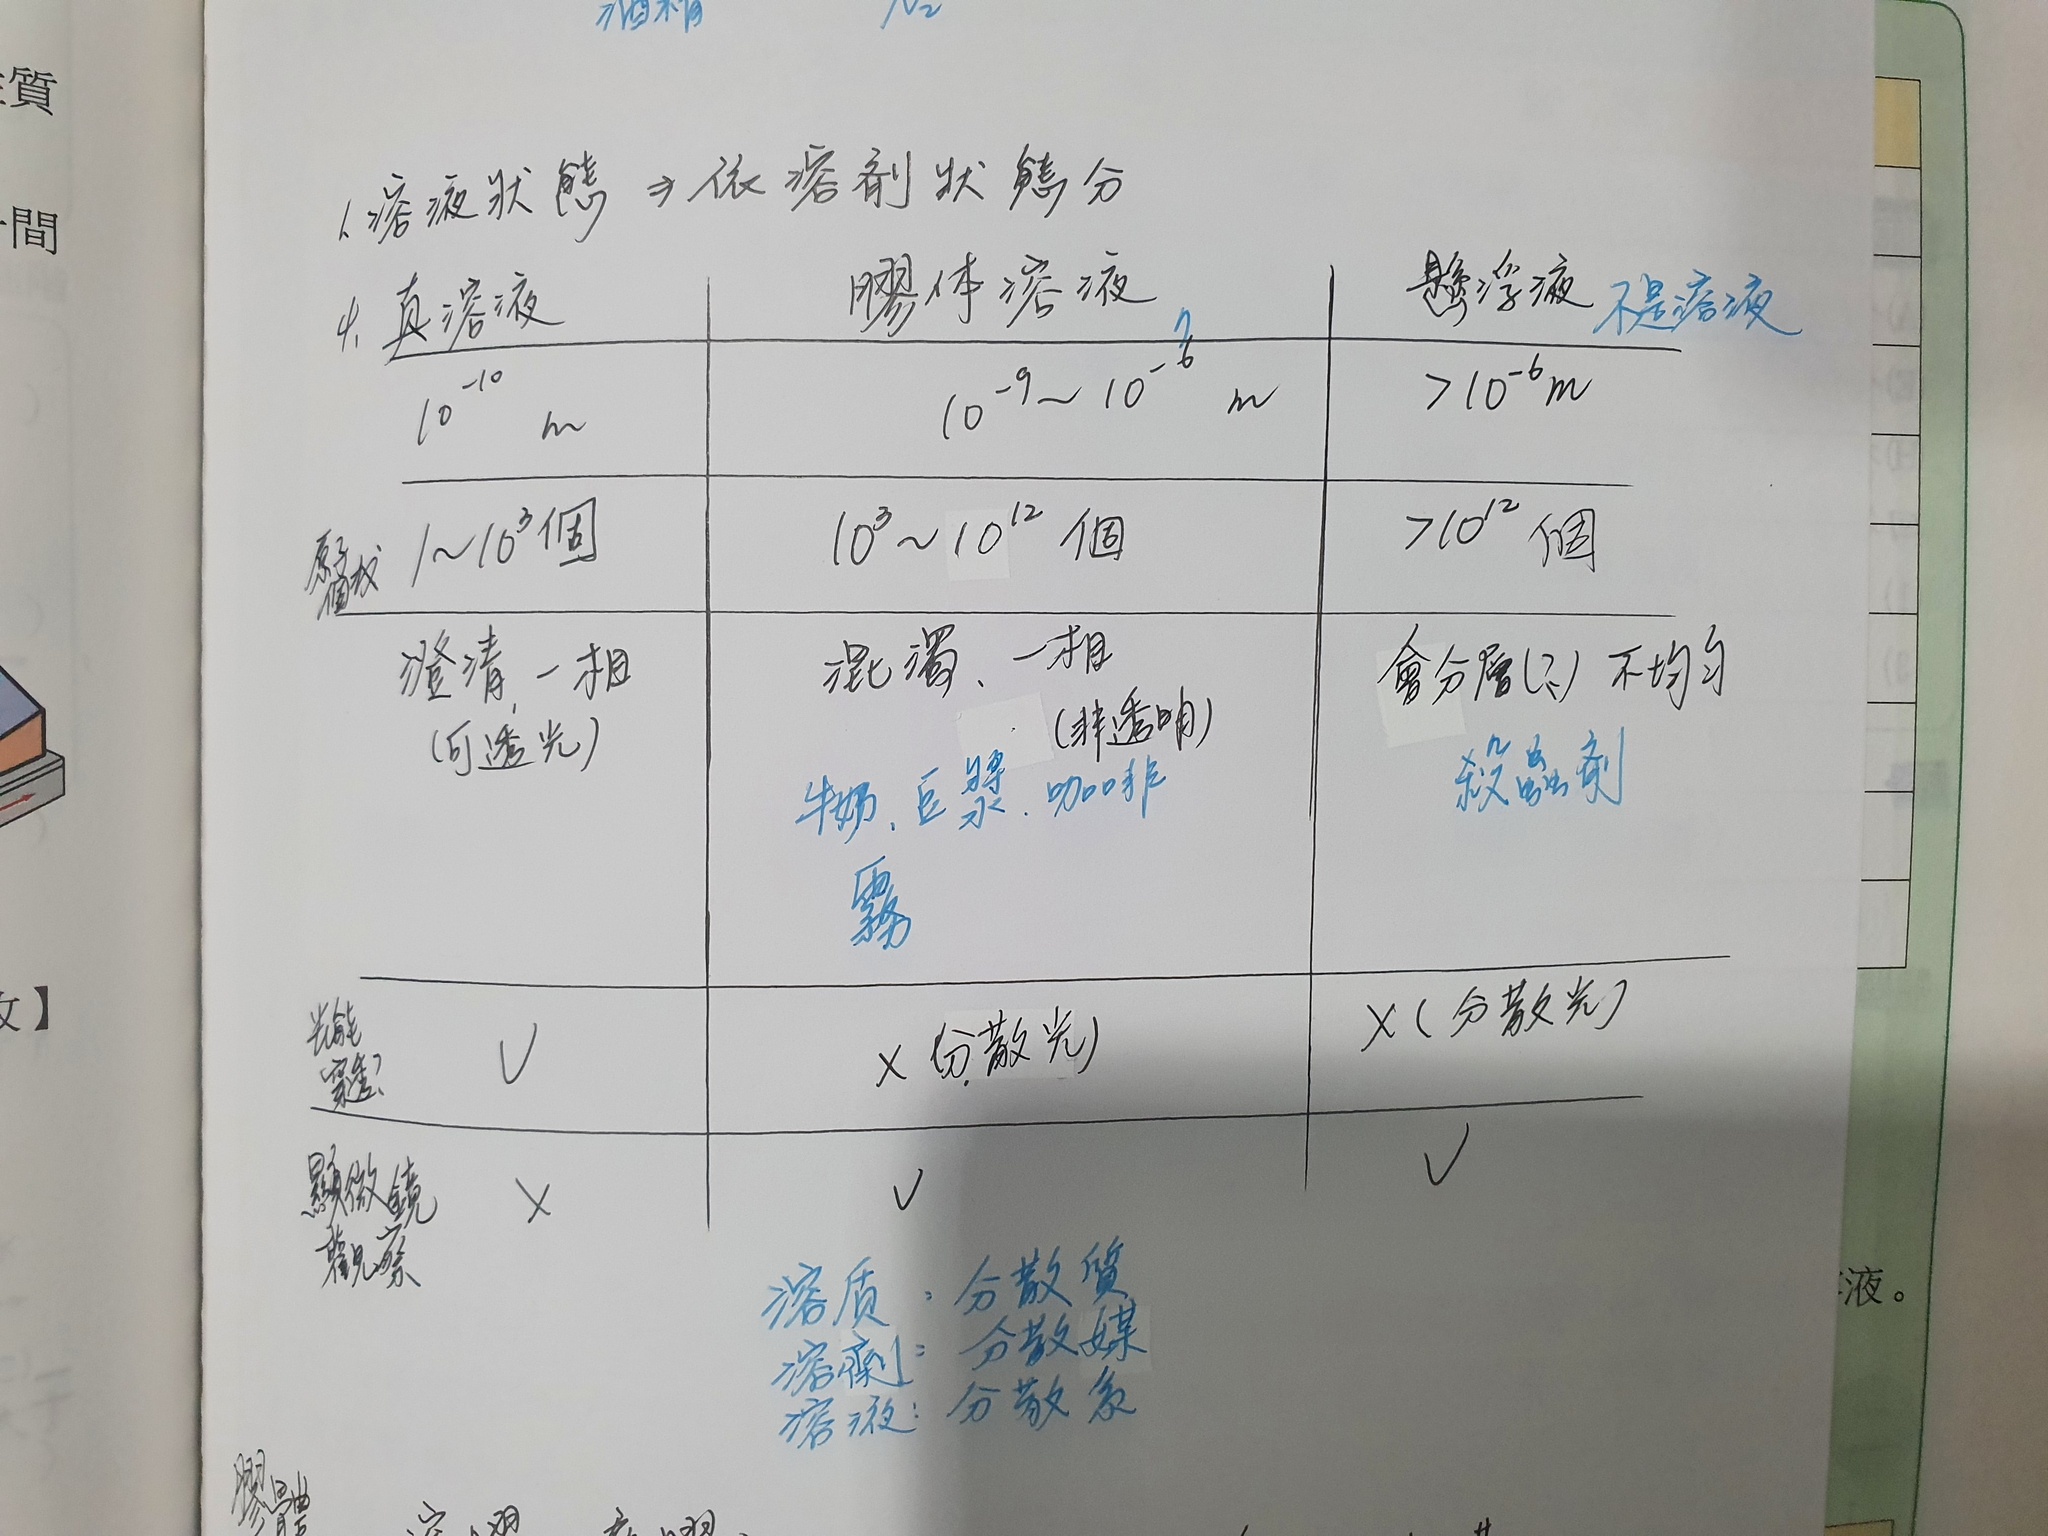 酒精 N₂
1. 溶液狀態 → 依溶劑狀態分
4. 真溶液 膠体溶液 懸浮液 不是溶液
10⁻¹⁰ m 10⁻⁹~10⁻⁶ m >10⁻⁶m
7
原子個数 1~10³個 10³~10¹² 個 >10¹² 個
澄清,一相 混濁、一相 會分層(?) 不均勻
(可透光) (非透明) 殺蟲劑
牛奶、豆漿、咖啡
霧
光能穿透? V X (分散光) X (分散光)
顯微鏡觀察 X V V
溶质:分散質
溶劑:分散媒
溶液:分散系
膠體
質
間
文】
液。